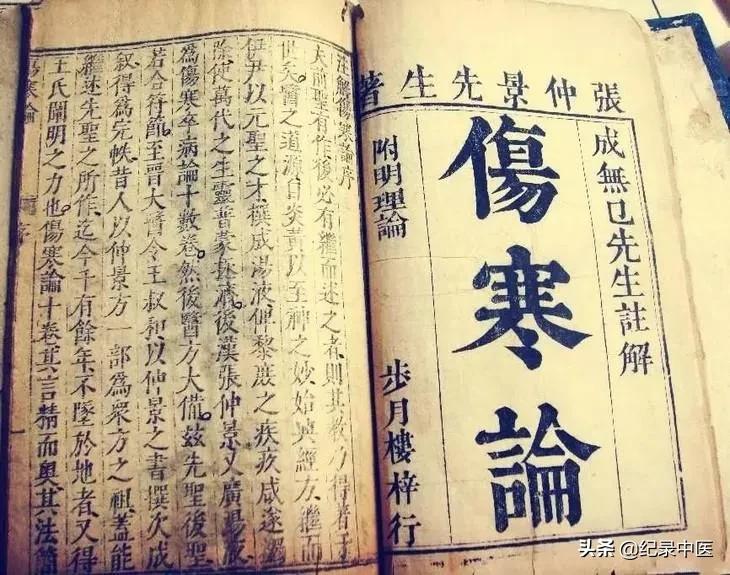 張仲景先生著
成無已先生註解
傷寒論
附明理論
步月樓梓行
注解傷寒論序
夫前聖有作後必有繼而述之者則其教乃得著于
世矣。醫之道源自炎黃以至神之妙始興經方。繼而
伊尹以元聖之才撰成湯液俾黎庶之疾疚咸遂蠲
除使萬代之生靈普蒙拯濟。後漢張仲景又廣湯液
為傷寒卒病論十數卷。然後醫方大備。茲先聖後聖
若合符節。至晉大醫令王叔和以仲景之書撰次成
敘得為完帙昔人以仲景方一部為眾方之祖。蓋能
繼述先聖之所作。迄今千有餘年不墜於地者又得
王氏闡明之力也。傷寒論十卷其言精而奧其法簡
傷寒論
序
头条 @纪录中医